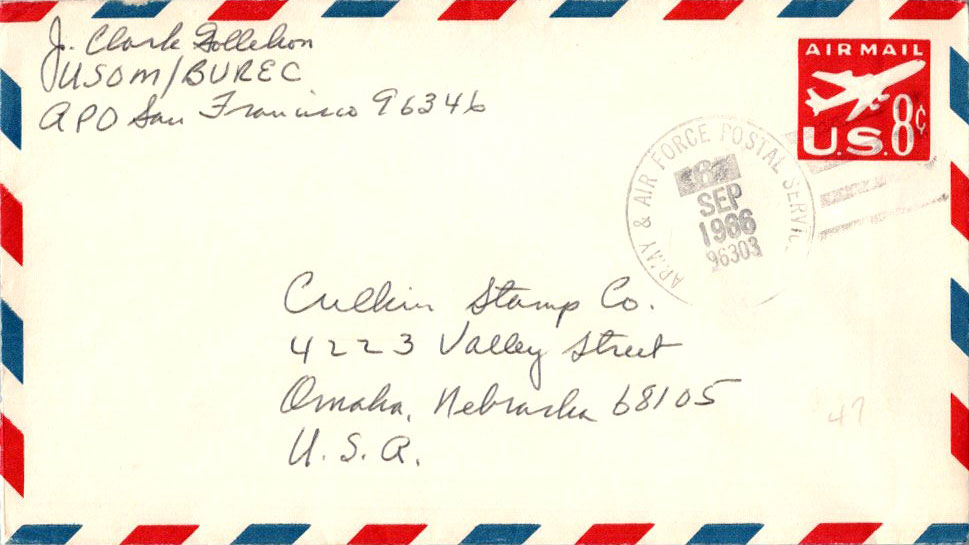 J. Clark Gollehon
USOM/BUREC
APO San Francisco 96346
AIR MAIL
U.S. 8¢
ARMY & AIR FORCE POSTAL SERVI
SEP
1966
96303
Culkin Stamp Co.
4223 Valley Street
Omaha, Nebraska 68105
U.S.A.
47